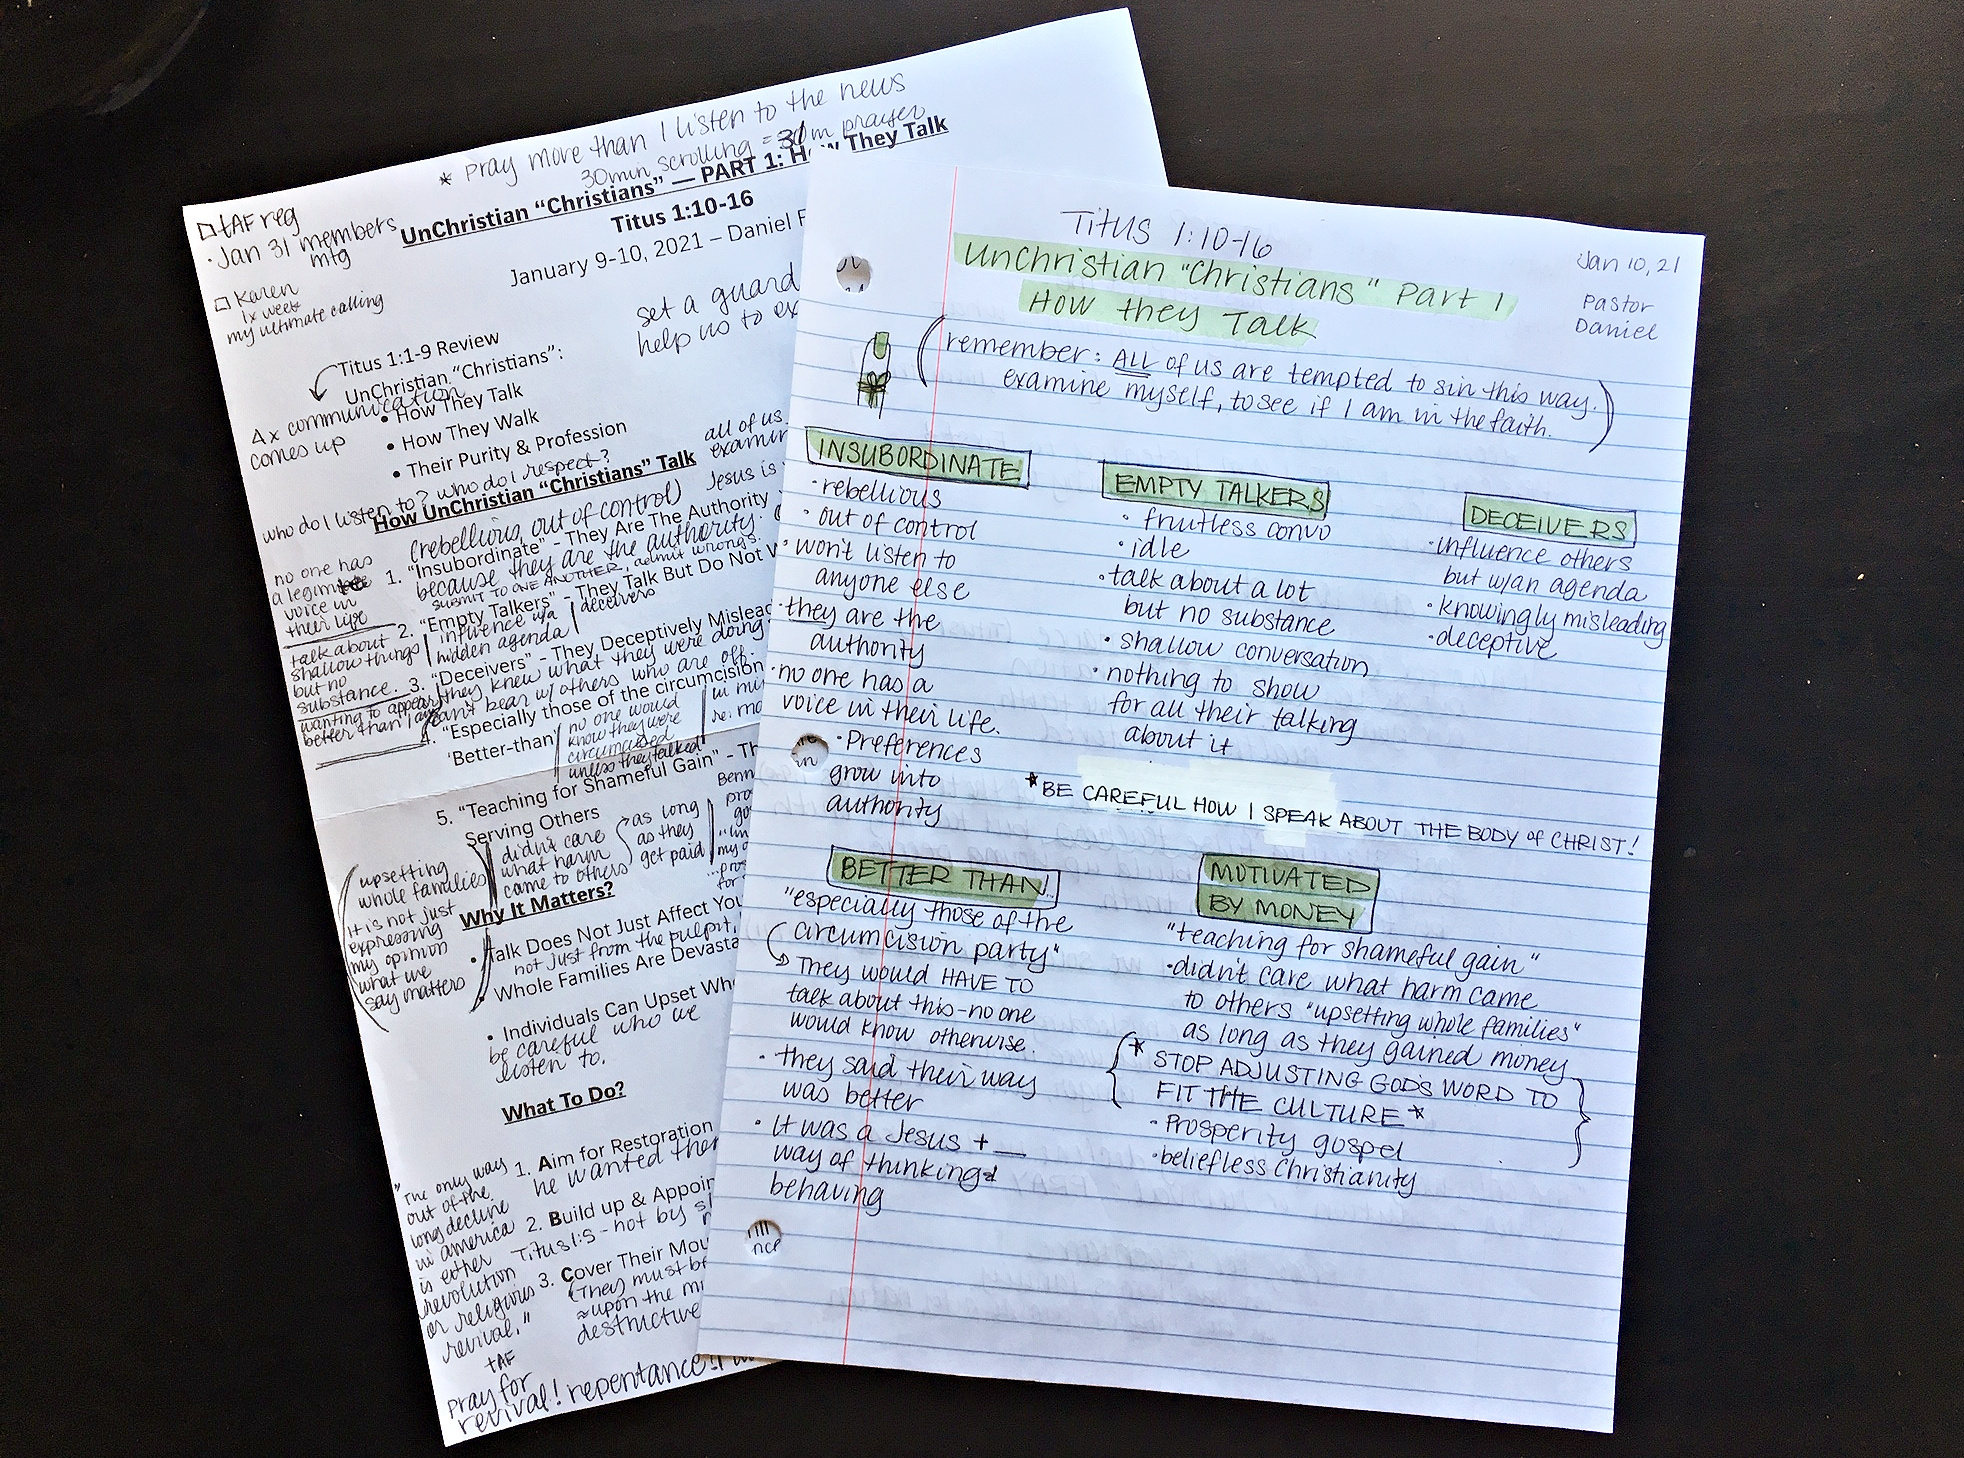 * pray more than I listen to the news
30min scrolling = 30m prayer
UnChristian "Christians" — PART 1: How They Talk
Titus 1:10-16
January 9-10, 2021 – Daniel
tAF reg
· Jan 31 members
mtg
Karen
1x week
my ultimate calling
set a guard
help us to
Titus 1:1-9 Review
UnChristian "Christians":
• How They Talk
• How They Walk
• Their Purity & Profession
4x communication
comes up
all of us
Jesus is
who do I listen to? who do I respect?
How UnChristian "Christians" Talk
(rebellious, out of control)
1. "Insubordinate" - They Are The Authority
because they are the authority.
SUBMIT TO ONE ANOTHER, admit wrongs.
no one has
a legimate
voice in
their life
2. "Empty Talkers" - They Talk But Do Not
influence w/a
hidden agenda
deceivers
talk about
shallow things
but no
substance.
3. "Deceivers" - They Deceptively Mislead
they knew what they were doing
can't bear w/ others who are off.
wanting to appear
better than I am
4. "Especially those of the circumcision
'Better-than'
no one would
know they were
circumcised
unless they talked
5. "Teaching for Shameful Gain" -
Serving Others
didn't care
what harm
came to others
as long
as they
get paid
upsetting
whole families
it is not just
expressing
my opinion
what we
say matters
Why It Matters?
• Talk Does Not Just Affect You
not just from the pulpit,
• Whole Families Are
• Individuals Can Upset
be careful who we
listen to.
What To Do?
1. Aim for Restoration
he wanted
2. Build up &
Titus 1:5 - not by
3. Cover Their
(They must be
upon the
destructive
"The only way
out of the
long decline
in america
is either
revolution
or religious
revival."
tAF
pray for
revival! repentance!!
Titus 1:10-16
UnChristian "Christians" Part 1
How they Talk
Jan 10, 21
Pastor
Daniel
(remember: ALL of us are tempted to sin this way.
examine myself, to see if I am in the faith.)
INSUBORDINATE
· rebellious
· out of control
· won't listen to
anyone else
· they are the
authority
· no one has a
voice in their life.
· Preferences
grow into
authority
EMPTY TALKERS
· fruitless convo
· idle
· talk about a lot
but no substance
· shallow conversation
· nothing to show
for all their talking
about it
DECEIVERS
· influence others
but w/an agenda
· knowingly misleading
· deceptive
*BE CAREFUL HOW I SPEAK ABOUT THE BODY of CHRIST!
BETTER THAN..
"especially those of the
circumcision party"
They would HAVE TO
talk about this - no one
would know otherwise.
· they said their way
was better
· It was a Jesus + __
way of thinking &
behaving
MOTIVATED
BY MONEY
"teaching for shameful gain"
· didn't care what harm came
to others "upsetting whole families"
as long as they gained money
* STOP ADJUSTING GOD'S WORD TO
FIT THE CULTURE *
· Prosperity gospel
· beliefless Christianity